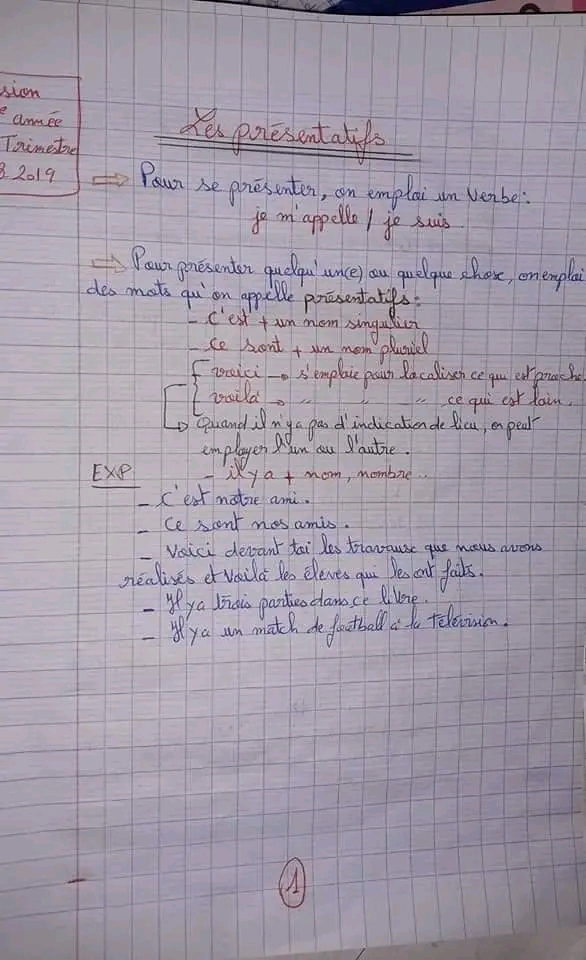 sion
e année
Trimestre
3 2019
Les présentatifs
⇒ Pour se présenter, on emploi un verbe:
je m'appelle / je suis
⇒ Pour présenter quelqu'un(e) ou quelque chose, on emploi
des mots qu'on appelle présentatifs:
- C'est + un nom singulier
- Ce sont + un nom pluriel
voici → s'emploie pour localiser ce qui est proche
voilà → " " " ce qui est loin.
↳ Quand il n'y a pas d'indication de lieu, on peut
employer l'un ou l'autre.
- il y a + nom, nombre..
EXP
- C'est notre ami.
- Ce sont nos amis.
- Voici devant toi les travause que nous avons
réalisés et Voilà les élèves qui les ont faits.
- Il y a trois parties dans ce livre.
- Il y a un match de football à la télévision.
1